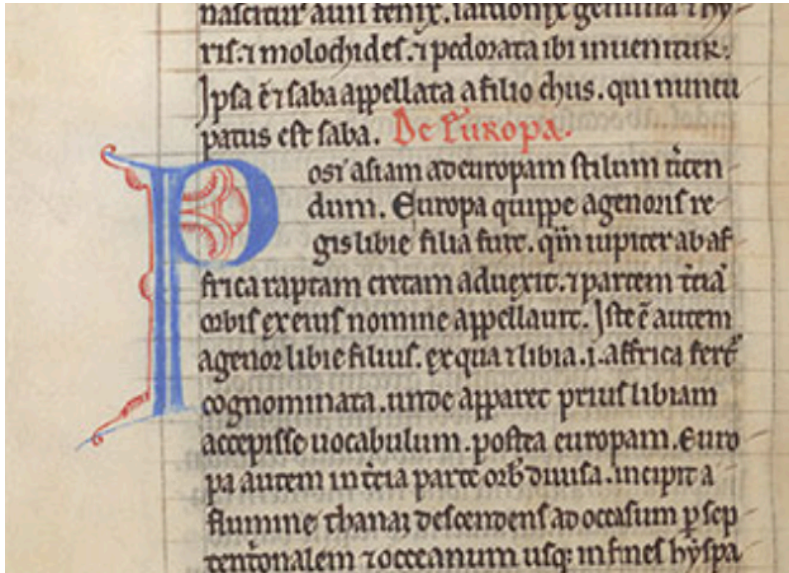 nascitur auis fenix. sardonix gemma ⁊ hy
ris. ⁊ molochides. ⁊ pedorata ibi inuenitur.
Ipsa ē ⁊ saba appellata a filio chus. qui nuncu
patus est saba. De Europa.
Post asiam ad europam stilum ūtcen
dum. Europa quippe agenoris re
gis libie filia fuit. qm̄ iupiter ab af
frica raptam cretam aduexit. ⁊ partem t̄ciā
orbis ex eius nomine appellauit. Iste ē autem
agenor libie filius. ex qua ⁊ libia .i. affrica fert̄
cognominata. unde apparet prius libiam
accepisse uocabulum. postea europam. Euro
pa autem in t̄cia parte orb̄ diuisa. incipit a
flumine thanai descendens ad occasum ꝑ sep
tent̄onalem ⁊ occeanum usq; in fines hyspa